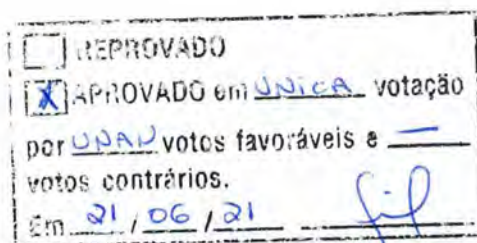 REPROVADO
X APROVADO em UNICA votação
por UNAN votos favoráveis e —
votos contrários.
Em 21 / 06 / 21